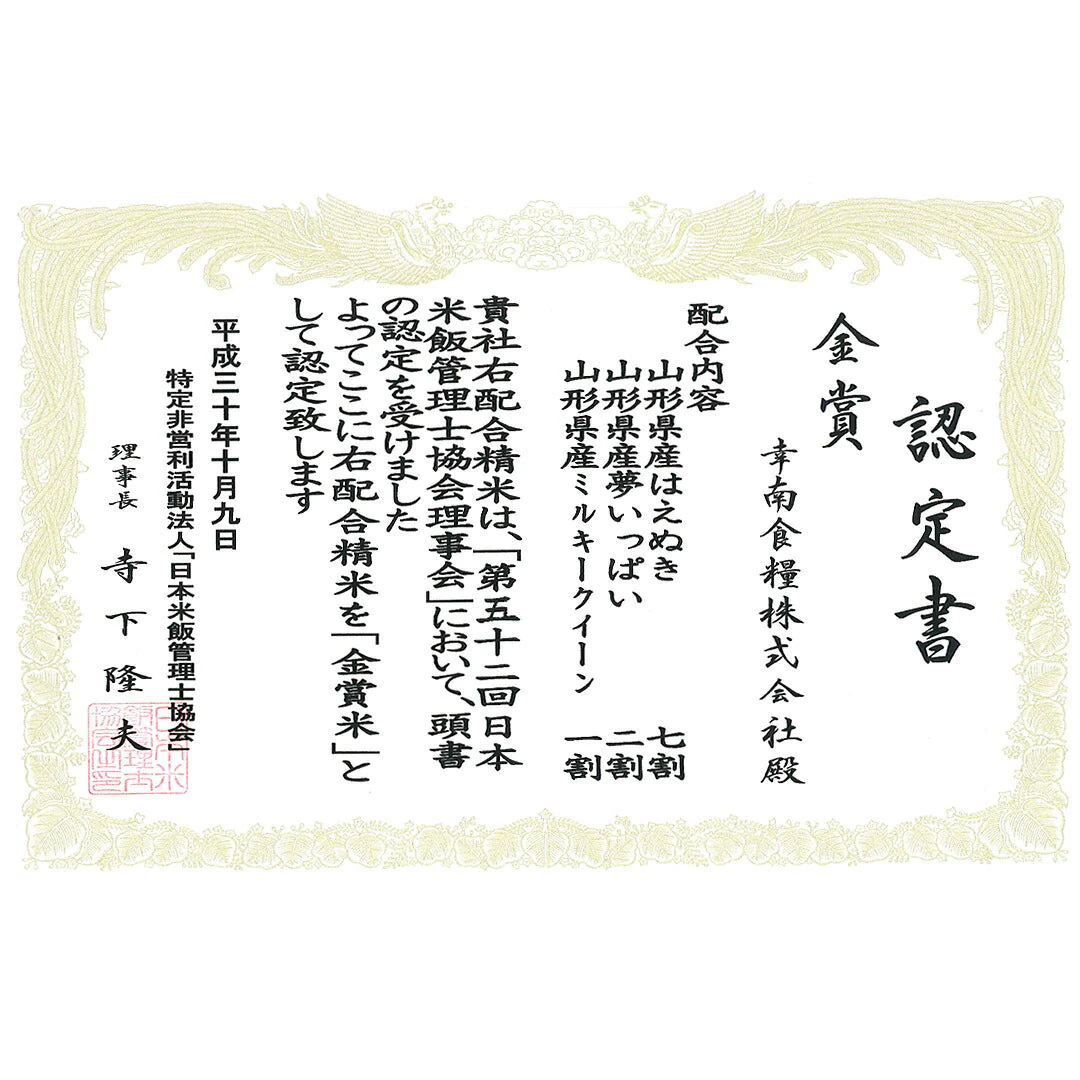 認定書
金賞
幸南食糧株式会社殿
配合内容
山形県産はえぬき 七割
山形県産夢いっぱい 二割
山形県産ミルキークイーン 一割
貴社右配合精米は、「第五十二回日本
米飯管理士協会理事会」において、頭書
の認定を受けました
よってここに右配合精米を「金賞米」と
して認定致します
平成三十年十月九日
特定非営利活動法人「日本米飯管理士協会」
理事長 寺下隆夫